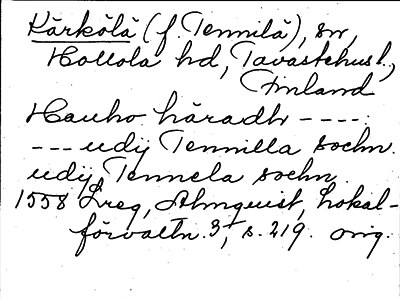 Kärkölä (f. Tennilä), sn,
Hollola hd, Tavastehusl.,
Finland
Hauho häradh ----.
--- udij Tennilla sochn.
udij Tennela sochn.
1558 Lreg, Almquist, Lokal-
förvaltn. 3, s. 219. orig.